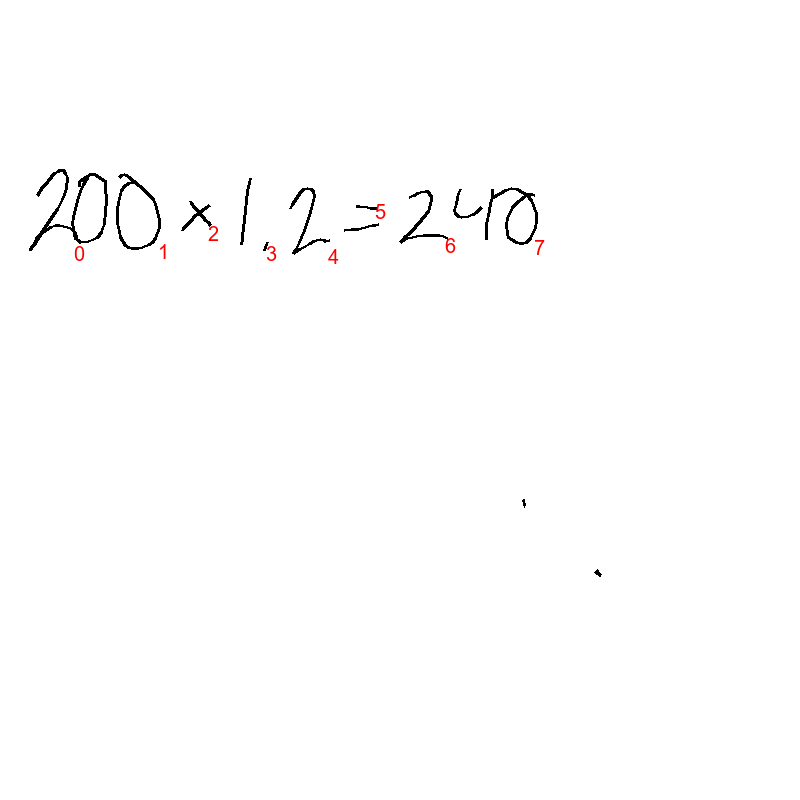 200 × 1.2 = 240
0 1 2 3 4 5 6 7